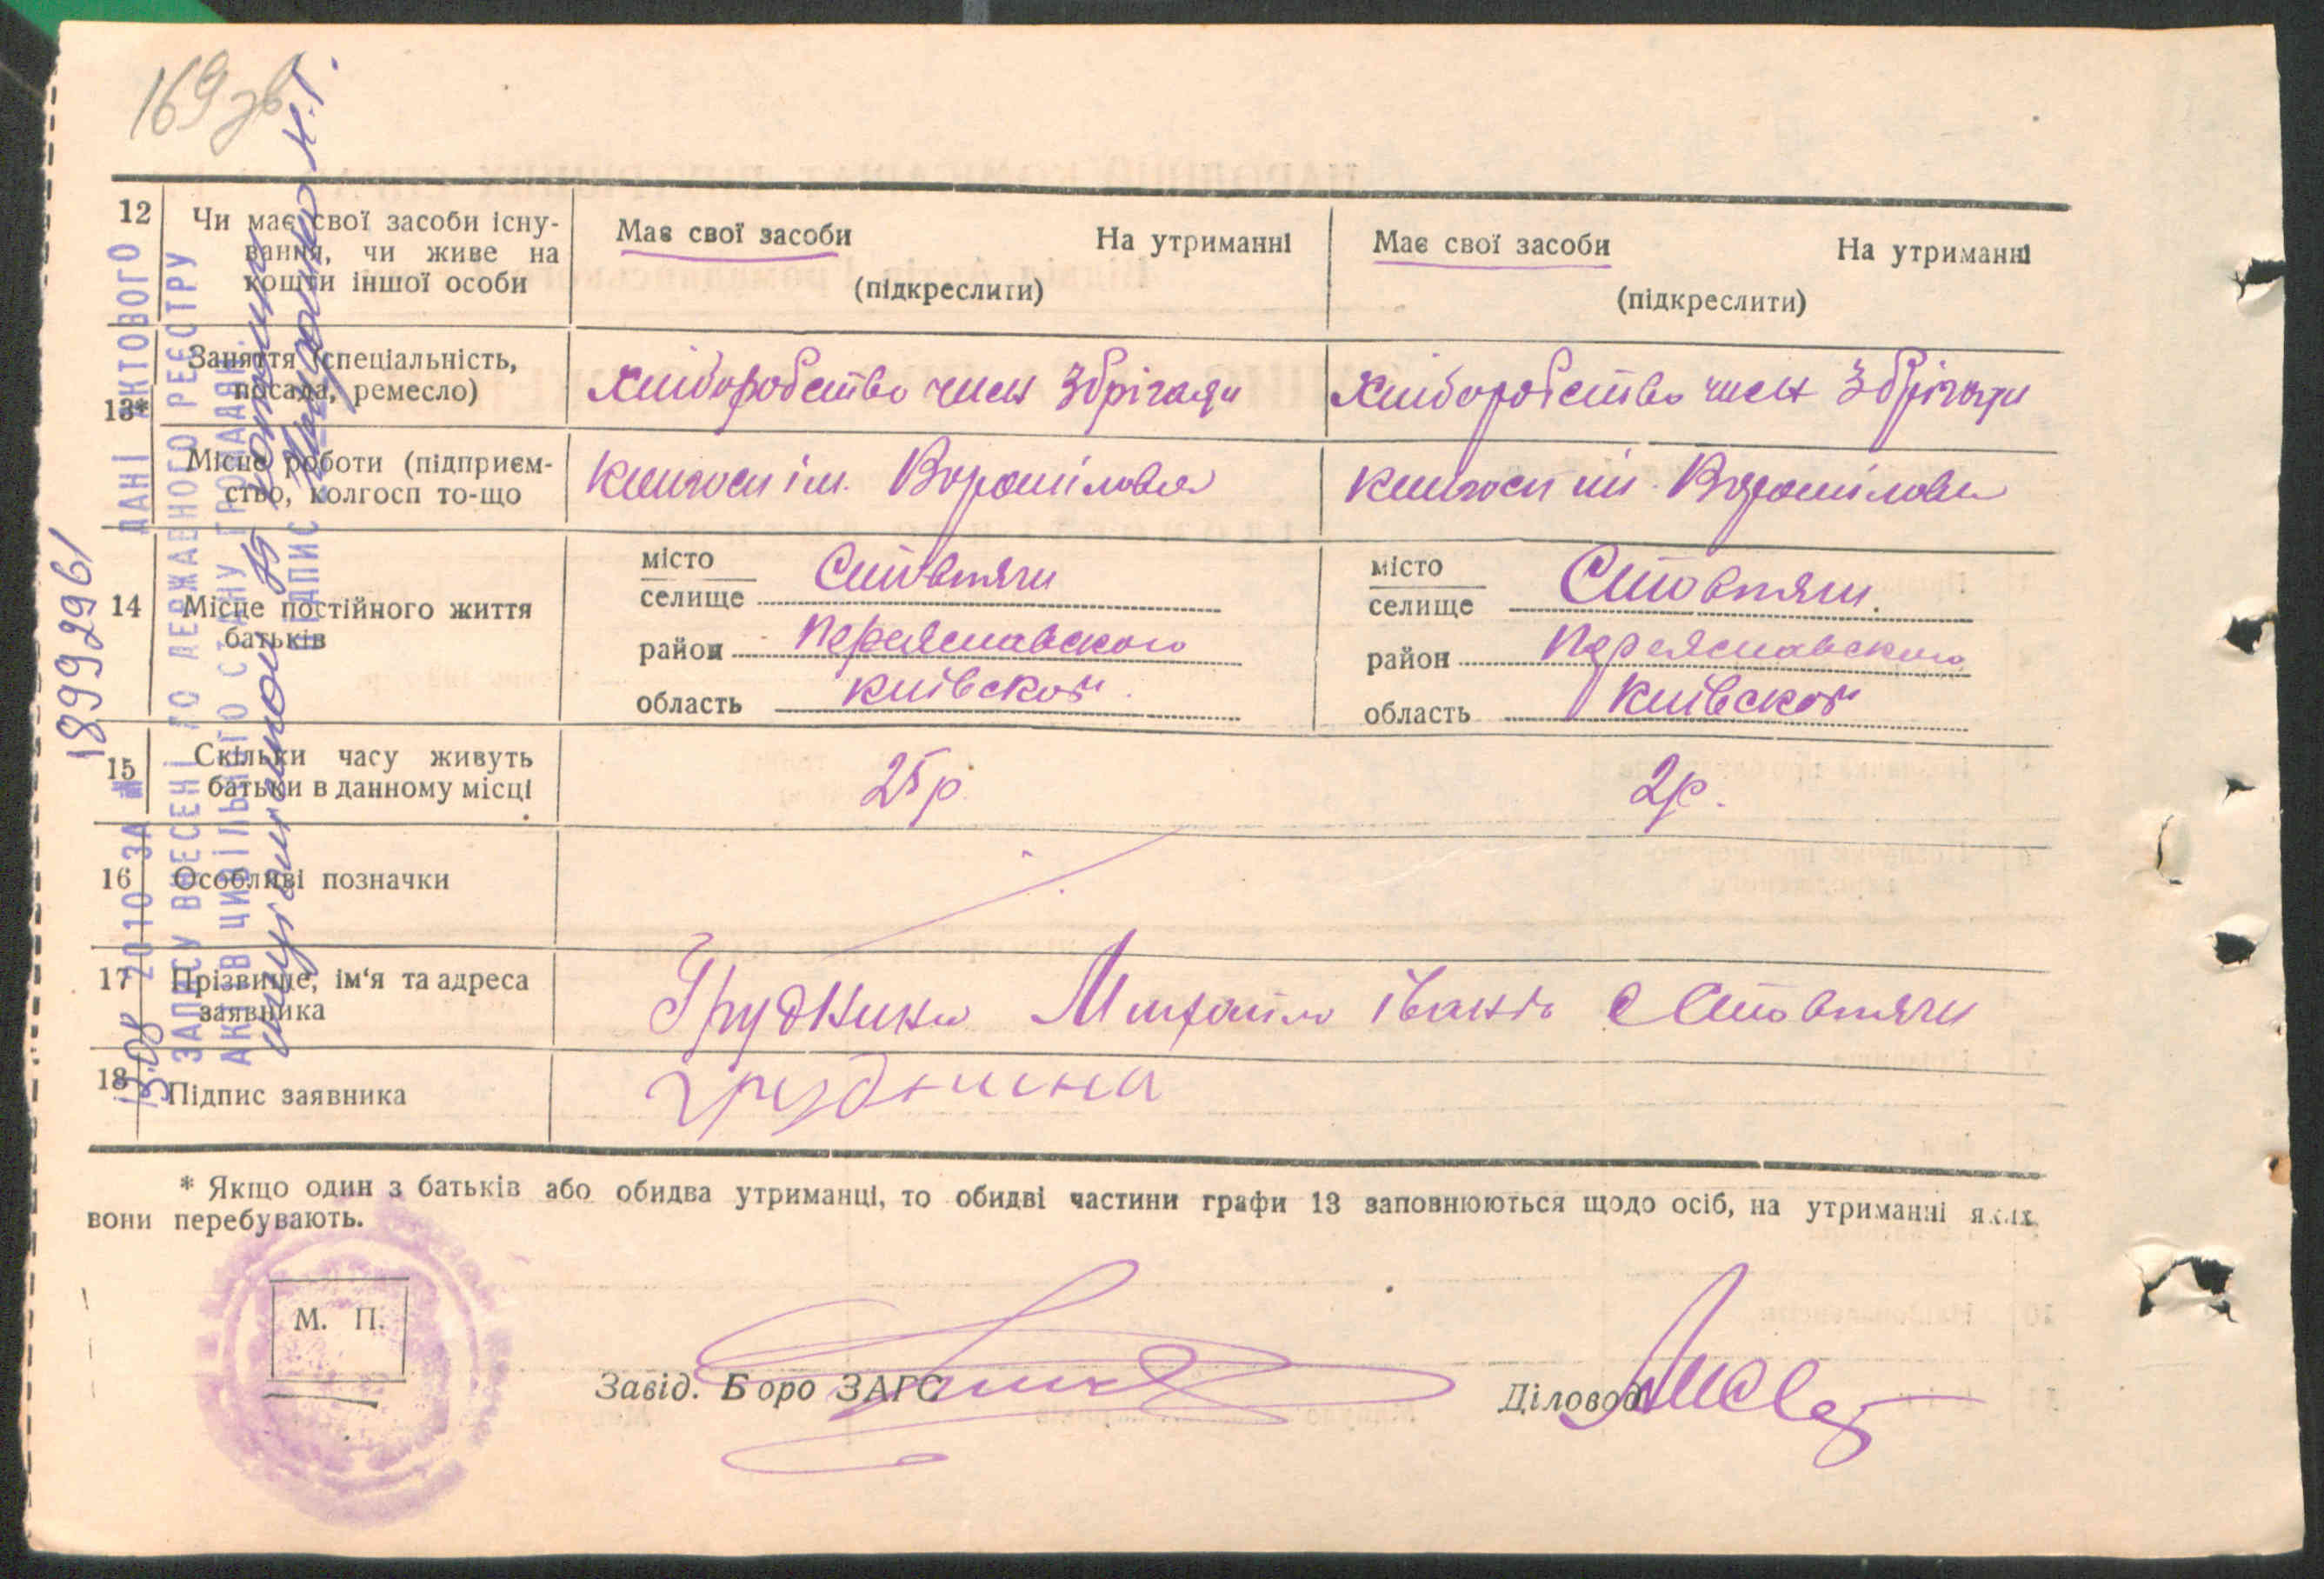 169 зв
12 Чи має свої засоби існу-
вання, чи живе на
кошти іншої особи
Має свої засоби На утриманні
(підкреслити)
Має свої засоби На утриманні
(підкреслити)
13* Заняття (спеціальність,
посада, ремесло)
хліборобство член 3 брігади
хліборобство член 3 брігади
Місце роботи (підприєм-
ство, колгосп то-що
колгосп ім. Ворошілова
колгосп ім. Ворошілова
14 Місце постійного життя
батьків
місто
селище Стовпяги
район Переяславського
область київской
місто
селище Стовпяги
район Переяславського
область київской
15 Скільки часу живуть
батьки в данному місці
25 р.
2 р.
16 Особливі позначки
17 Прізвище, ім'я та адреса
заявника
Груднина Михайло іванів с Стовпяги
18 Підпис заявника
груднина
* Якщо один з батьків або обидва утриманці, то обидві частини графи 13 заповнюються щодо осіб, на утриманні яких
вони перебувають.
М. П.
Завід. Бюро ЗАГС
Діловод
18992961
19.08 2010 ЗА № ДАНІ АКТОВОГО
ЗАПИСУ ВНЕСЕНІ ДО ДЕРЖАВНОГО РЕЄСТРУ
АКТІВ ЦИВІЛЬНОГО СТАНУ ГРОМАДЯН.
ПІДПИС